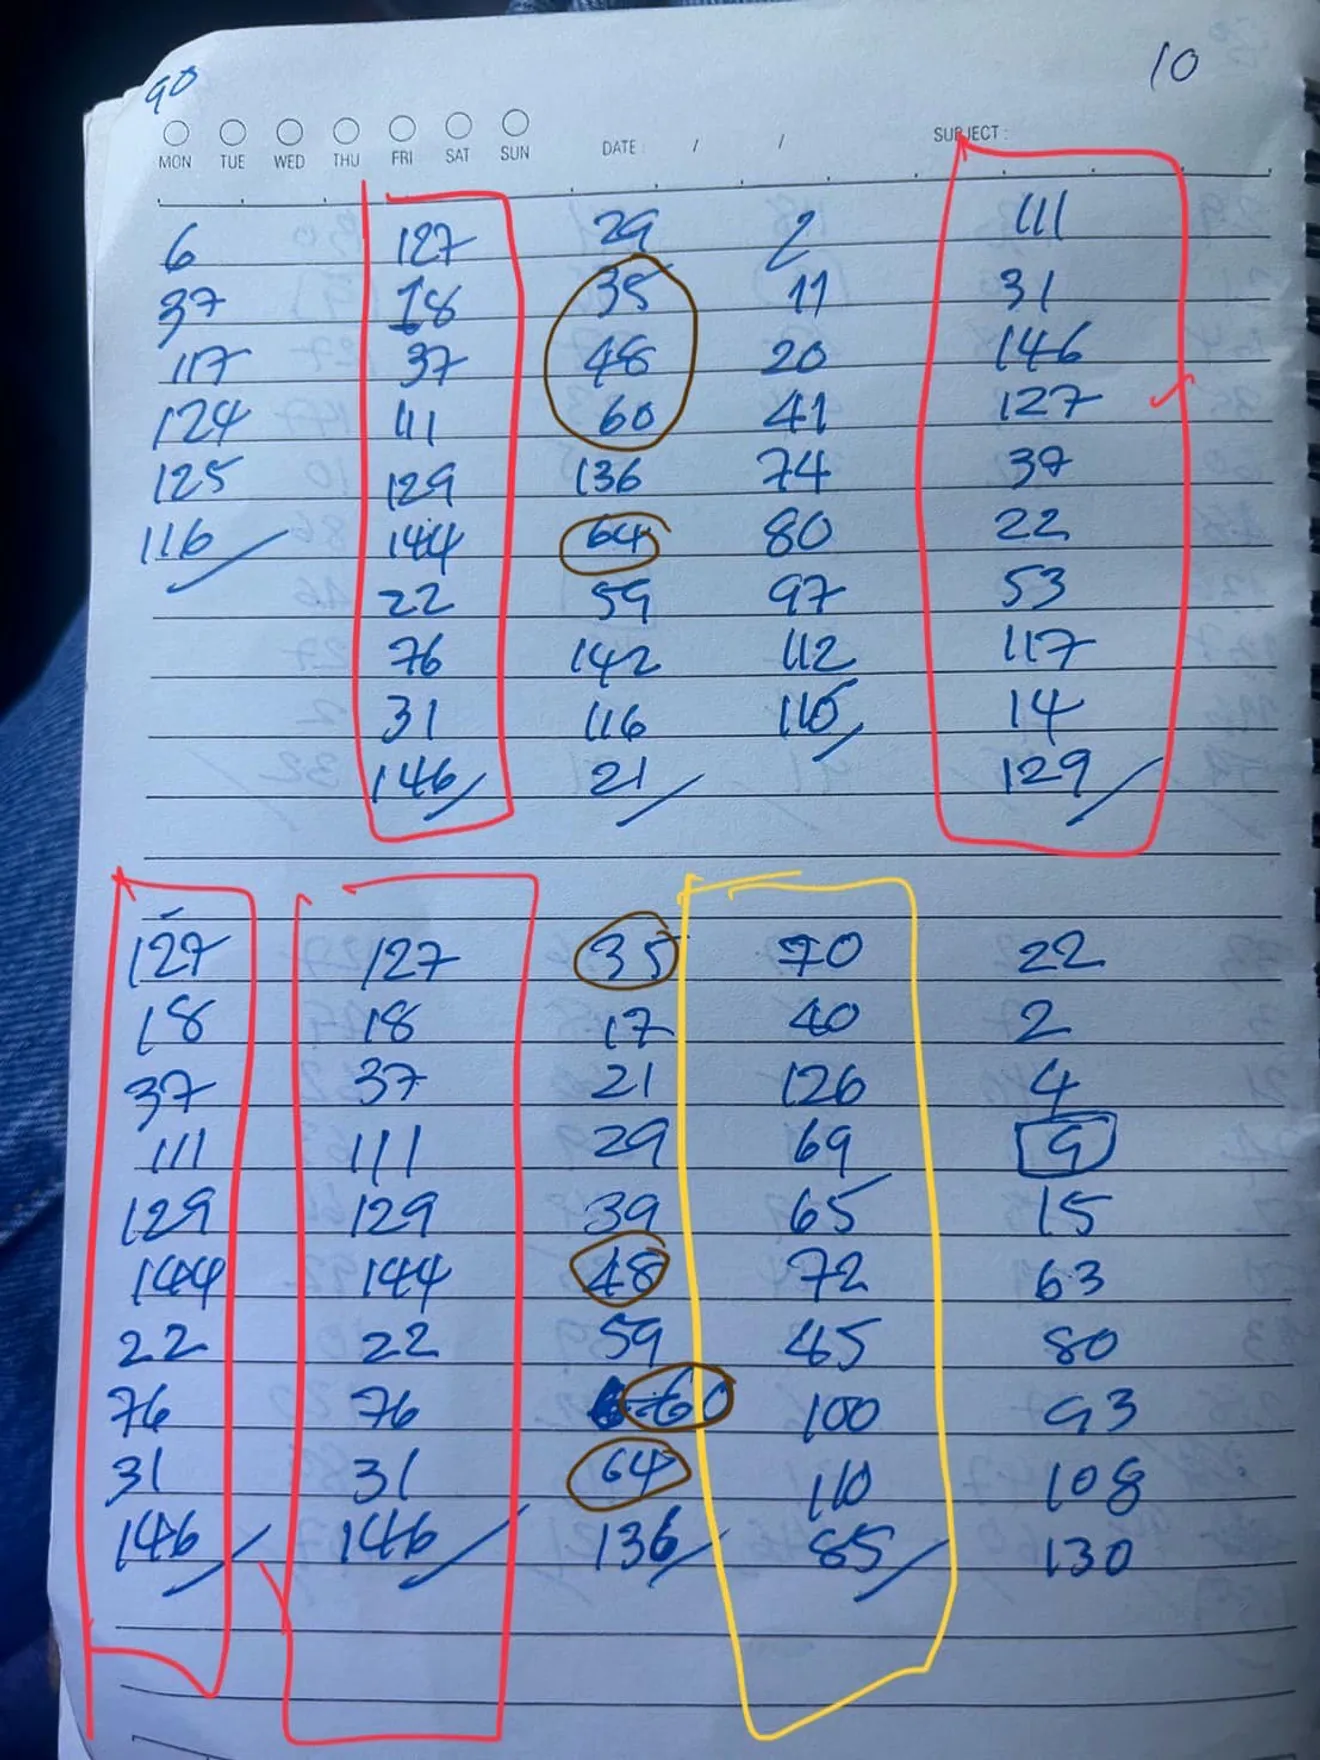 90 10
MON TUE WED THU FRI SAT SUN DATE / / SUBJECT :
6 127 29 2 111
37 18 35 11 31
117 37 48 20 146
124 111 60 41 127
125 129 136 74 37
116 144 64 80 22
22 59 97 53
76 142 112 117
31 116 110 14
146 21 129
127 127 35 70 22
18 18 17 40 2
37 37 21 126 4
111 111 29 69 9
129 129 39 65 15
144 144 48 72 63
22 22 59 45 80
76 76 60 100 93
31 31 64 110 108
146 146 136 85 130